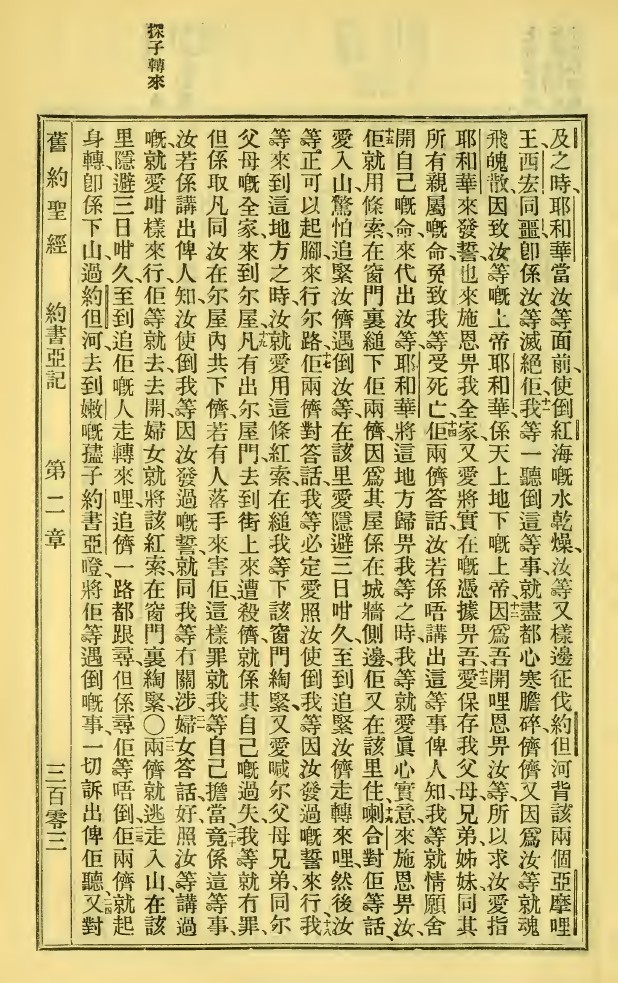 探子轉來
及之時、耶和華當汝等面前、使倒紅海嘅水乾燥、汝等又樣邊征伐約但河背該兩個亞摩哩
王、西宏同噩、卽係汝等滅絕佢、十一我等一聽倒這等事、就盡都心寒膽碎、儕儕又因爲汝等就魂
飛魄散、因致汝等嘅上帝耶和華、係天上地下嘅上帝、十二因爲吾開哩恩畀汝等、所以求汝愛指
耶和華來發誓、也來施恩畀我全家、又愛將實在嘅憑據畀吾、十三愛保存我父母兄弟姊妹、同其
所有親屬嘅命、免致我等受死亡、十四佢兩儕答話、汝若係唔講出這等事俾人知、我等就情願舍
開自己嘅命、來代出汝等、耶和華將這地方歸畀我等之時、我等就愛眞心實意來施恩畀汝、
十五佢就用條索、在窗門裏縋下佢兩儕、因爲其屋係在城牆側邊、佢又在該里住、十六喇合對佢等話、
愛入山、驚怕追緊汝儕遇倒汝等、在該里愛隱避三日咁久、至到追緊汝儕走轉來哩、然後汝
等正可以起腳來行尔路、十七佢兩儕對答話、我等必定愛照汝使倒我等因汝發過嘅誓來行、十八我
等來到這地方之時、汝就愛用這條紅索、在縋我等下該窗門綯緊、又愛喊尔父母兄弟、同尔
父母嘅全家、來到尔屋、十九凡有出尔屋門、去到街上來遭殺儕、就係其自己嘅過失、我等就冇罪、
但係取凡同汝在尔屋內共下儕、若有人落手來害佢、這樣罪就我等自己擔當、二十竟係這等事、
汝若係講出俾人知、汝使倒我等因汝發過嘅誓、就同我等冇關涉、二一婦女答話、好照汝等講過
嘅就愛咁樣來行、佢等就去、去開婦女就將該紅索在窗門裏綯緊、〇二二兩儕就逃走入山、在該
里隱避三日咁久、至到追佢嘅人走轉來哩、追儕一路都跟尋、但係尋佢等唔倒、二三佢兩儕就起
身轉、卽係下山、過約但河、去到嫩嘅孻子約書亞嗒、將佢等遇倒嘅事、一切訴出俾佢聽、二四又對
舊約聖經　約書亞記　第二章　三百零三